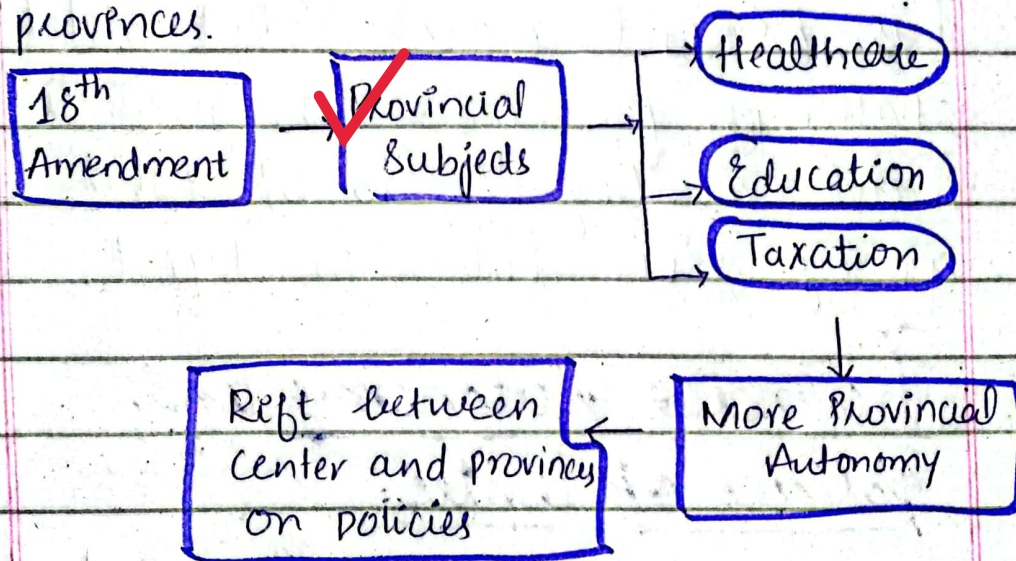 provinces.
18th
Amendment
Provincial
Subjects
Healthcare
Education
Taxation
More Provincial
Autonomy
Rift between
center and provinces
on policies